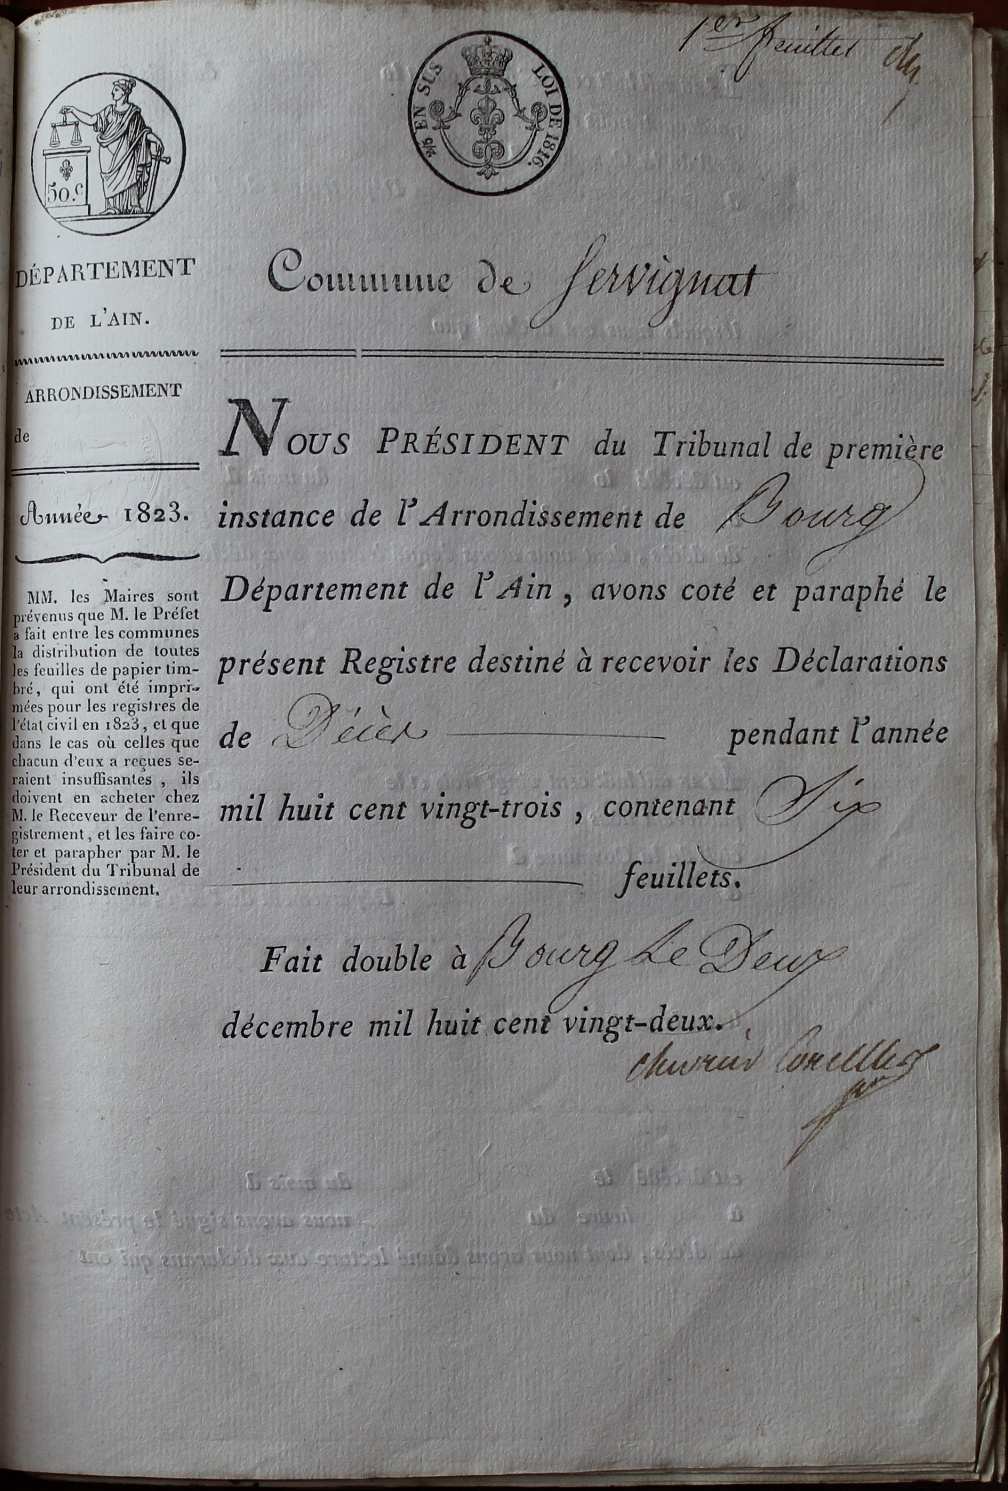 1er feuillet
2/10 EN SUS LOI DE 1816.
50.C
DÉPARTEMENT
DE L'AIN.
ARRONDISSEMENT
de
Année 1823.
MM. les Maires sont
prévenus que M. le Préfet
a fait entre les communes
la distribution de toutes
les feuilles de papier tim-
bré, qui ont été impri-
mées pour les registres de
l'état civil en 1823, et que
dans le cas où celles que
chacun d'eux a reçues se-
raient insuffisantes, ils
doivent en acheter chez
M. le Receveur de l'enre-
gistrement, et les faire co-
ter et parapher par M. le
Président du Tribunal de
leur arrondissement.
Commune de Servignat
NOUS PRÉSIDENT du Tribunal de première
instance de l'Arrondissement de Bourg
Département de l'Ain, avons coté et paraphé le
présent Registre destiné à recevoir les Déclarations
de Décès pendant l'année
mil huit cent vingt-trois, contenant Six
feuillets.
Fait double à Bourg Le Deux
décembre mil huit cent vingt-deux.